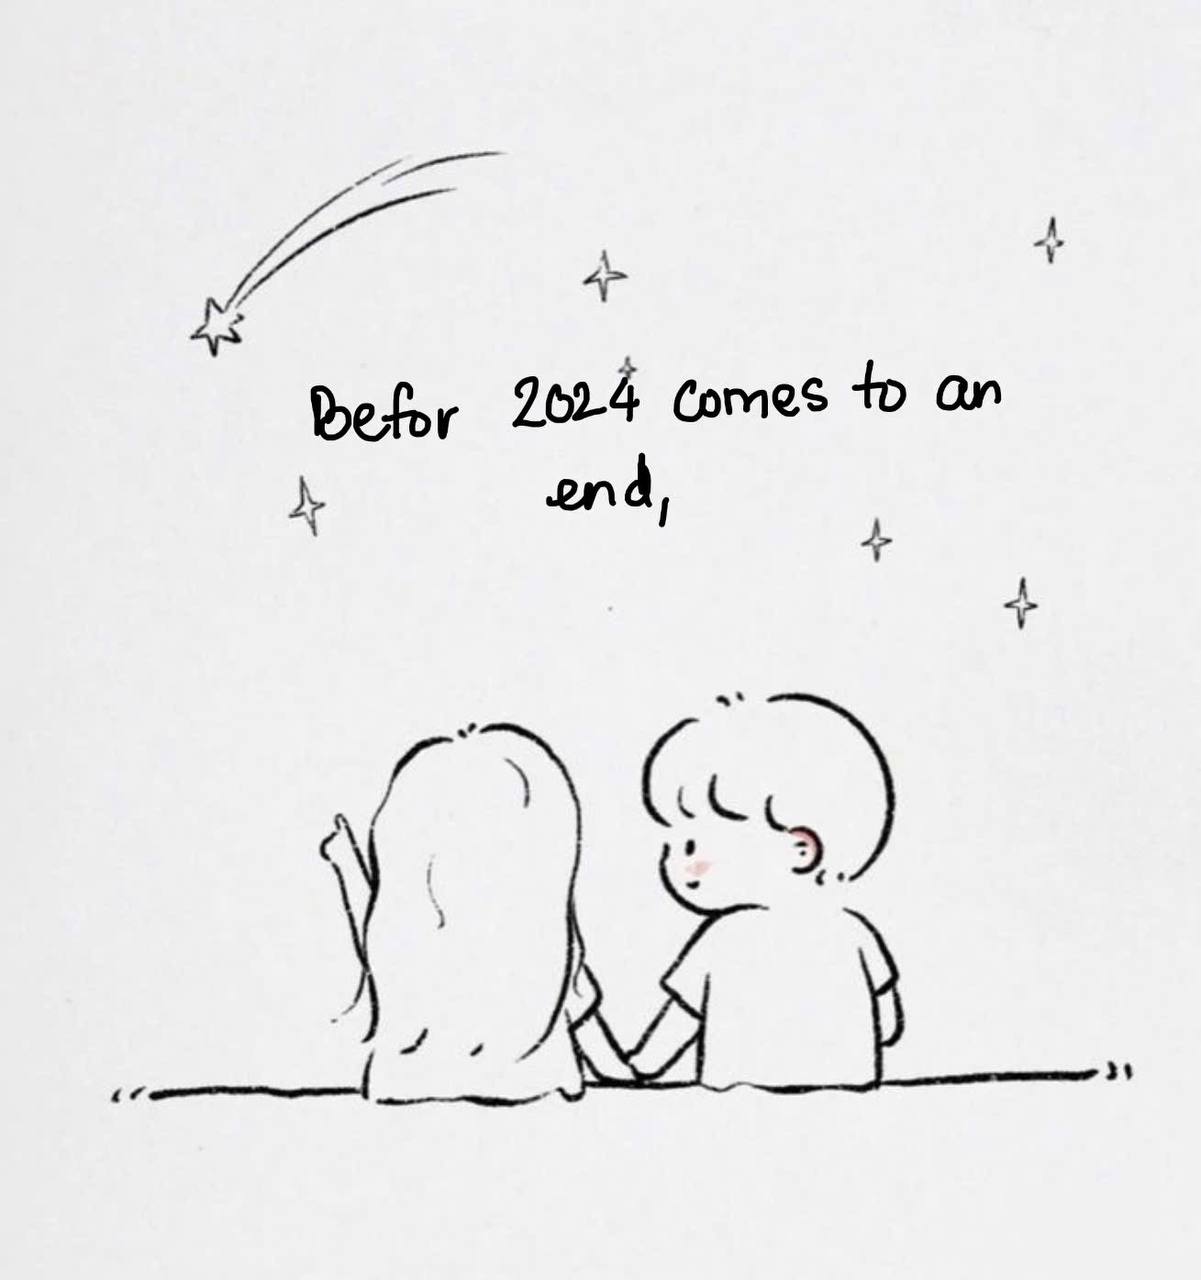 Befor 2024 comes to an
end,